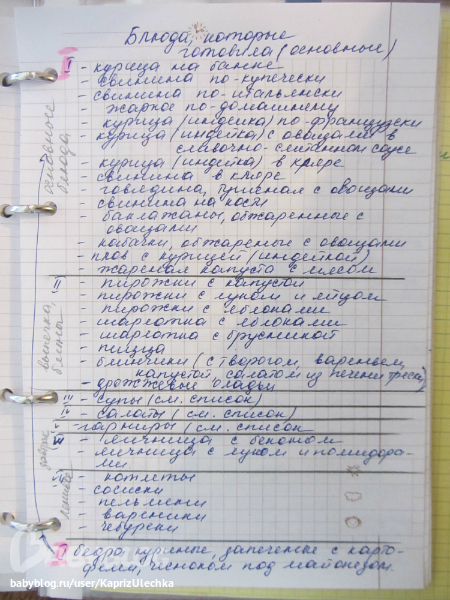 Блюда, которые
готовила (основные)
I - курица на банке
- свинина по-купечески
- свинина по-итальянски
- жаркое по-домашнему
- курица (индейка) по-французски
- курица (индейка) с овощами в
сливочно-сметанном соусе
- курица (индейка) в кляре
- свинина в кляре
- говядина, тушеная с овощами
- свинина на кости
- баклажаны, обжаренные с
овощами
- кабачки, обжареные с овощами
- плов с курицей (индейкой)
- жареная капуста с мясом
основные блюда
II - пирожки с капустой
- пирожки с луком и яйцом
- пирожки с яблоками
- шарлотка с яблоками
- шарлотка с брусникой
- пицца
- блинчики (с творогом, вареньем,
капустой, салатом из печени трески)
- дрожжевые оладьи
выпечка, блины
III - супы (см. список)
IV - салаты (см. список)
- гарниры (см. список
- яичница с беконом
- яичница с луком и помидора-
ми
- котлеты
- сосиски
- пельмени
- вареники
- чебуреки
I бедра куриные, запеченные с карто-
фелем, чесноком под майонезом.
babyblog.ru/user/KaprizUlechka